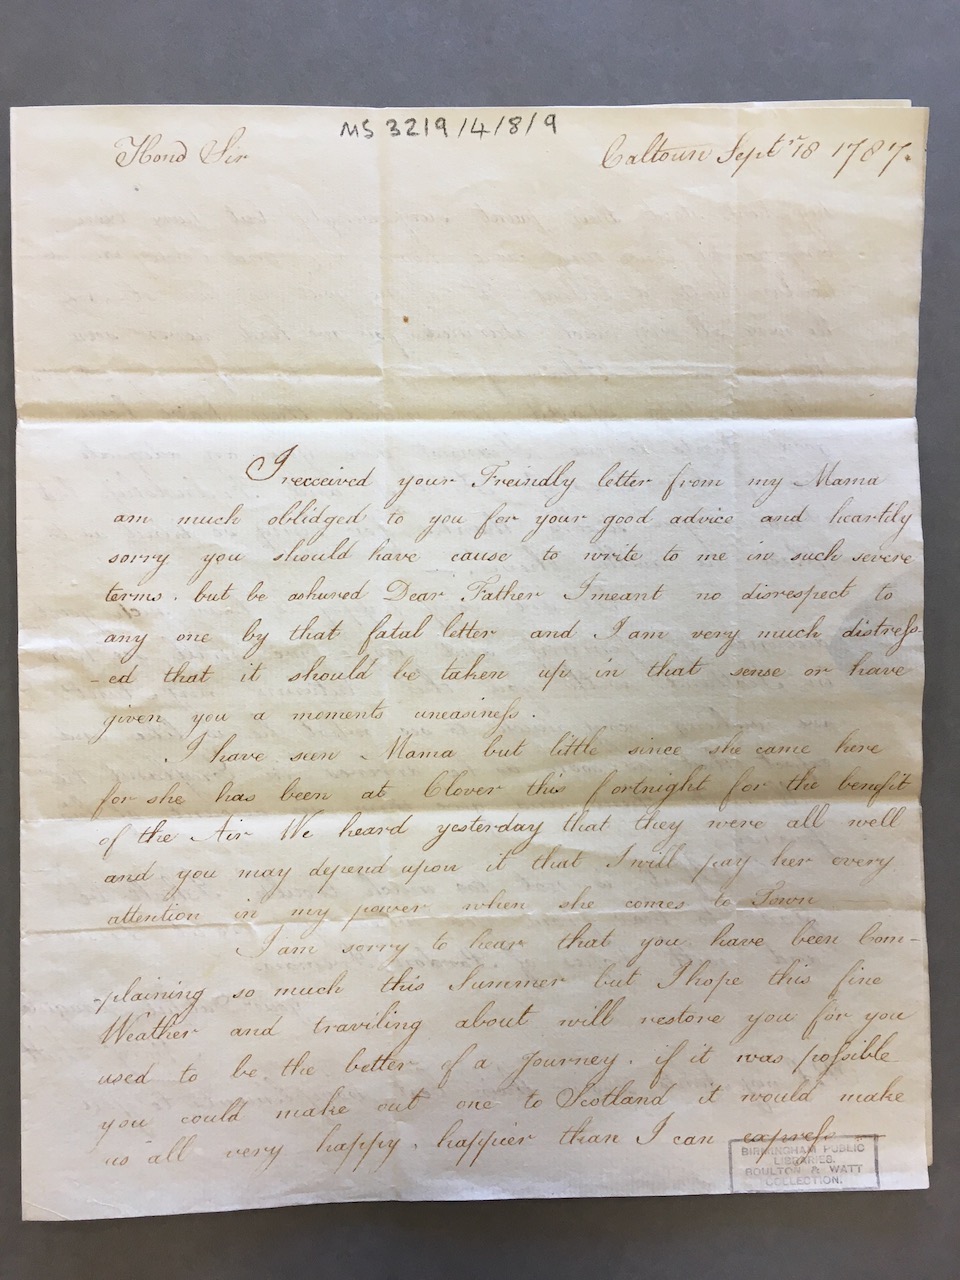 MS 3219/4/8/9
Hond Sir
Caltoun Septr 18 1787.
I recceived your Freindly letter from my Mama
am much oblidged to you for your good advice and heartily
sorry you should have cause to write to me in such severe
terms. but be ashured Dear Father I meant no disrespect to
any one by that fatal letter and I am very much distress-
-ed that it should be taken up in that sense or have
given you a moments uneasiness.
I have seen Mama but little since she came here
for she has been at Clover this fortnight for the benefit
of the Air We heard yesterday that they were all well
and you may depend upon it that I will pay her every
attention in my power when she comes to Town
I am sorry to hear that you have been Com-
-plaining so much this Summer but I hope this fine
Weather and traviling about will restore you for you
used to be the better of a Journey. if it was possible
you could make out one to Scotland it would make
us all very happy. happier than I can express
BIRMINGHAM PUBLIC
LIBRARIES.
BOULTON & WATT
COLLECTION.